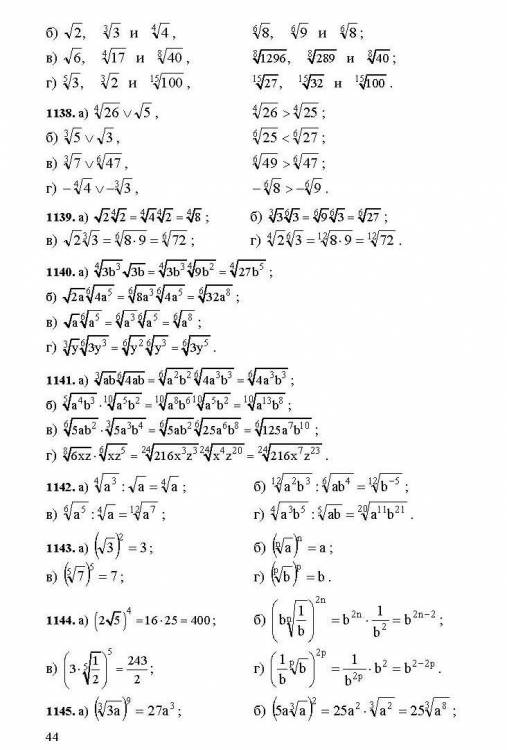 б) √2, ∛3 и ∜4, ⁶√8, ⁶√9 и ⁶√8;
в) √6, ∜17 и ⁸√40, ⁸√1296, ⁸√289 и ⁸√40;
г) ⁵√3, ∛2 и ¹⁵√100, ¹⁵√27, ¹⁵√32 и ¹⁵√100.
1138. а) ∜26 ∨ √5, ∜26 > ∜25;
б) ∛5 ∨ √3, ⁶√25 < ⁶√27;
в) ∛7 ∨ ⁶√47, ⁶√49 > ⁶√47;
г) −∜4 ∨ −∛3, −⁶√8 > −⁶√9.
1139. а) √2∜2 = ∜4∜2 = ∜8; б) ∛3⁶√3 = ⁶√9⁶√3 = ⁶√27;
в) √2∛3 = ⁶√(8·9) = ⁶√72; г) ∜2⁶√3 = ¹²√(8·9) = ¹²√72.
1140. а) ∜(3b³)√(3b) = ∜(3b³)∜(9b²) = ∜(27b⁵);
б) √(2a)⁶√(4a⁵) = ⁶√(8a³)⁶√(4a⁵) = ⁶√(32a⁸);
в) √a⁶√(a⁵) = ⁶√(a³)⁶√(a⁵) = ⁶√(a⁸);
г) ∛y⁶√(3y³) = ⁶√(y²)⁶√(y³) = ⁶√(3y⁵).
1141. а) ∛(ab)⁶√(4ab) = ⁶√(a²b²)⁶√(4a³b³) = ⁶√(4a³b³);
б) ⁵√(a⁴b³)·¹⁰√(a⁵b²) = ¹⁰√(a⁸b⁶)¹⁰√(a⁵b²) = ¹⁰√(a¹³b⁸);
в) ⁶√(5ab²)·∛(5a³b⁴) = ⁶√(5ab²)⁶√(25a⁶b⁸) = ⁶√(125a⁷b¹⁰);
г) ⁸√(6xz)·⁶√(xz⁵) = ²⁴√(216x³z³)²⁴√(x⁴z²⁰) = ²⁴√(216x⁷z²³).
1142. а) ∜(a³) : √a = ∜a; б) ¹²√(a²b³) : ⁶√(ab⁴) = ¹²√(b⁻⁵);
в) ⁶√(a⁵) : ∜a = ¹²√(a⁷); г) ∜(a³b⁵) : ⁵√(ab) = ²⁰√(a¹¹b²¹).
1143. а) (√3)² = 3; б) (ⁿ√a)ⁿ = a;
в) (⁵√7)⁵ = 7; г) (ᵖ√b)ᵖ = b.
1144. а) (2√5)⁴ = 16·25 = 400; б) (b ⁿ√(1/b))²ⁿ = b²ⁿ · 1/b² = b²ⁿ⁻²;
в) (3·⁵√(1/2))⁵ = 243/2; г) (1/b ᵖ√b)²ᵖ = 1/b²ᵖ · b² = b²⁻²ᵖ.
1145. а) (∛(3a))⁹ = 27a³; б) (5a∛a)² = 25a²·∛(a²) = 25∛(a⁸);
44